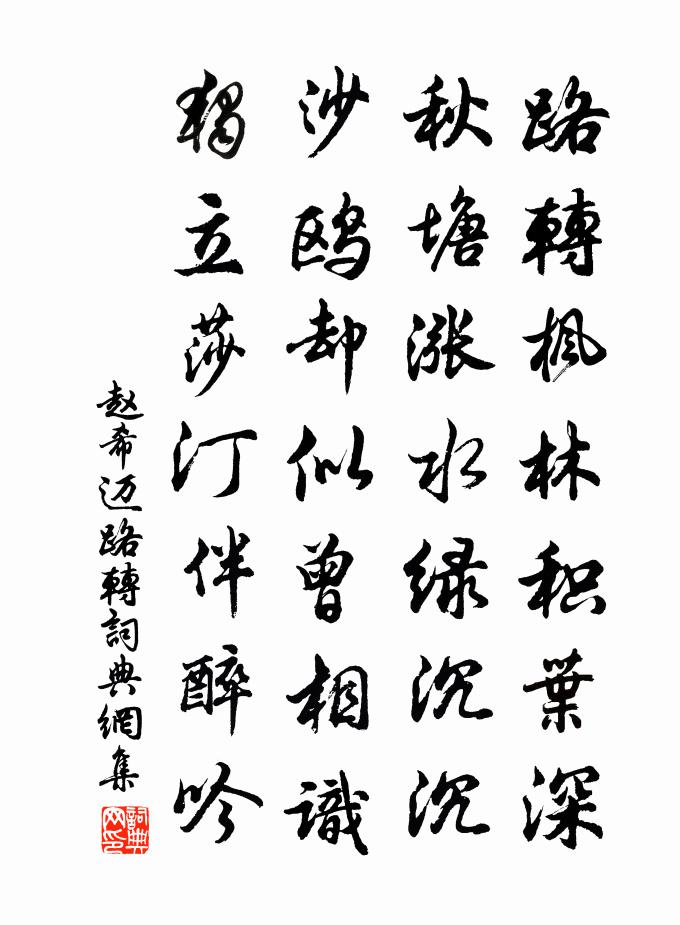 路轉楓林积葉深
秋塘漲水绿沉沉
沙鸥却似曾相識
獨立莎汀伴醉吟
赵希迈路轉詞典網集
詞典
网印